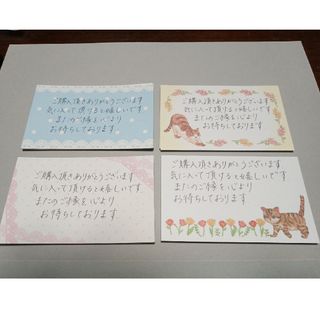 ご購入頂きありがとうございます
気に入って頂けると嬉しいです
またのご縁を心より
お待ちしております
ご購入頂きありがとうございます
気に入って頂けると嬉しいです
またのご縁を心より
お待ちしております
ご購入頂きありがとうございます
気に入って頂けると嬉しいです
またのご縁を心より
お待ちしております
ご購入頂きありがとうございます
気に入って頂けると嬉しいです
またのご縁を心より
お待ちしております